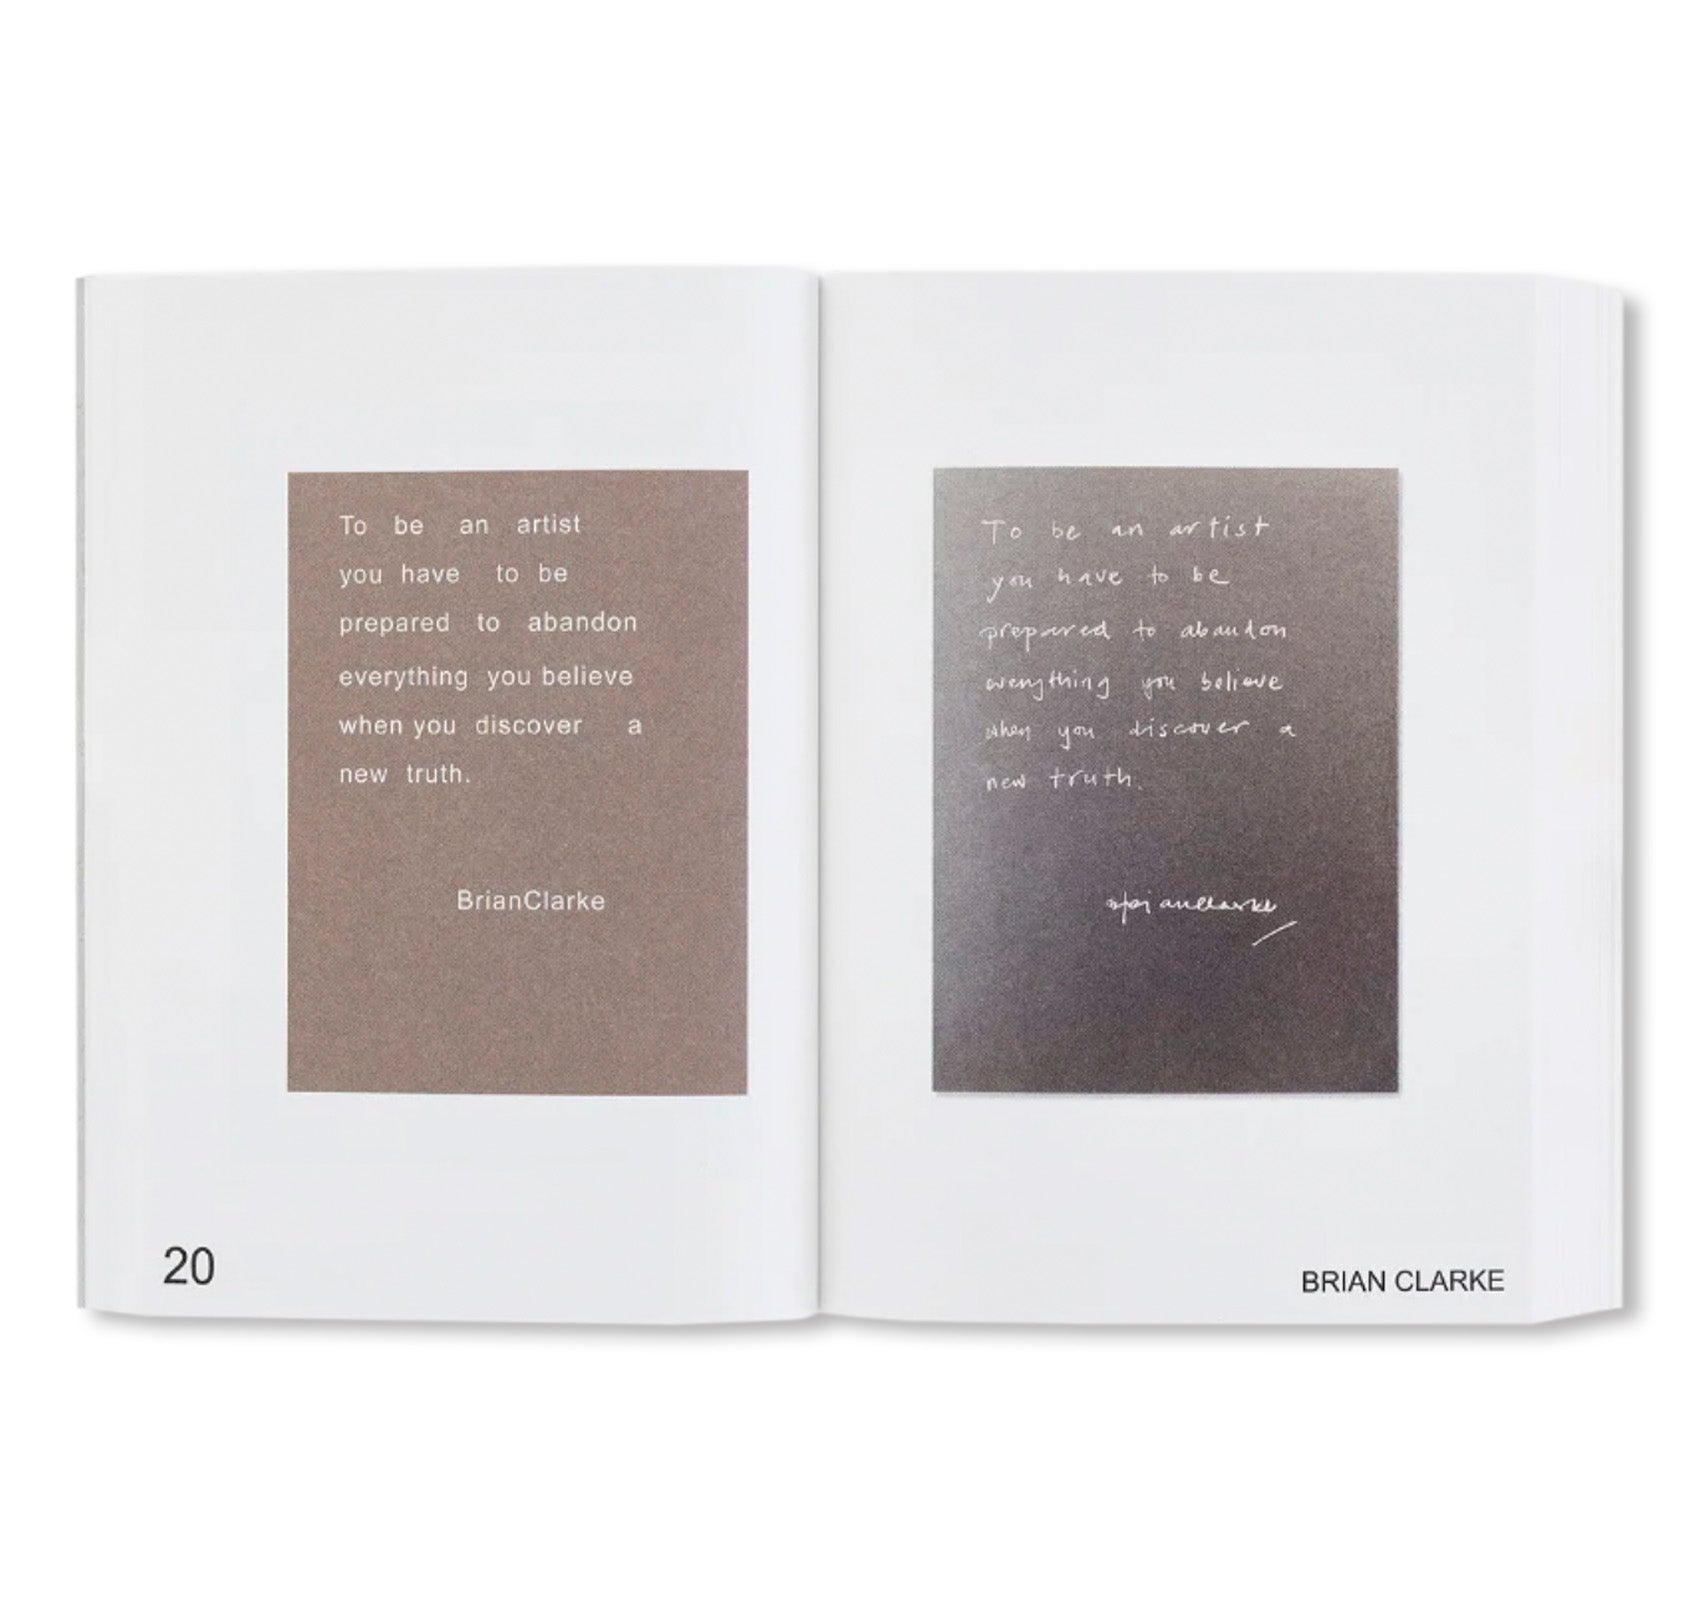 To be an artist
you have to be
prepared to abandon
everything you believe
when you discover a
new truth.
BrianClarke
20
To be an artist
you have to be
prepared to abandon
everything you believe
when you discover a
new truth.
brianclarke
BRIAN CLARKE